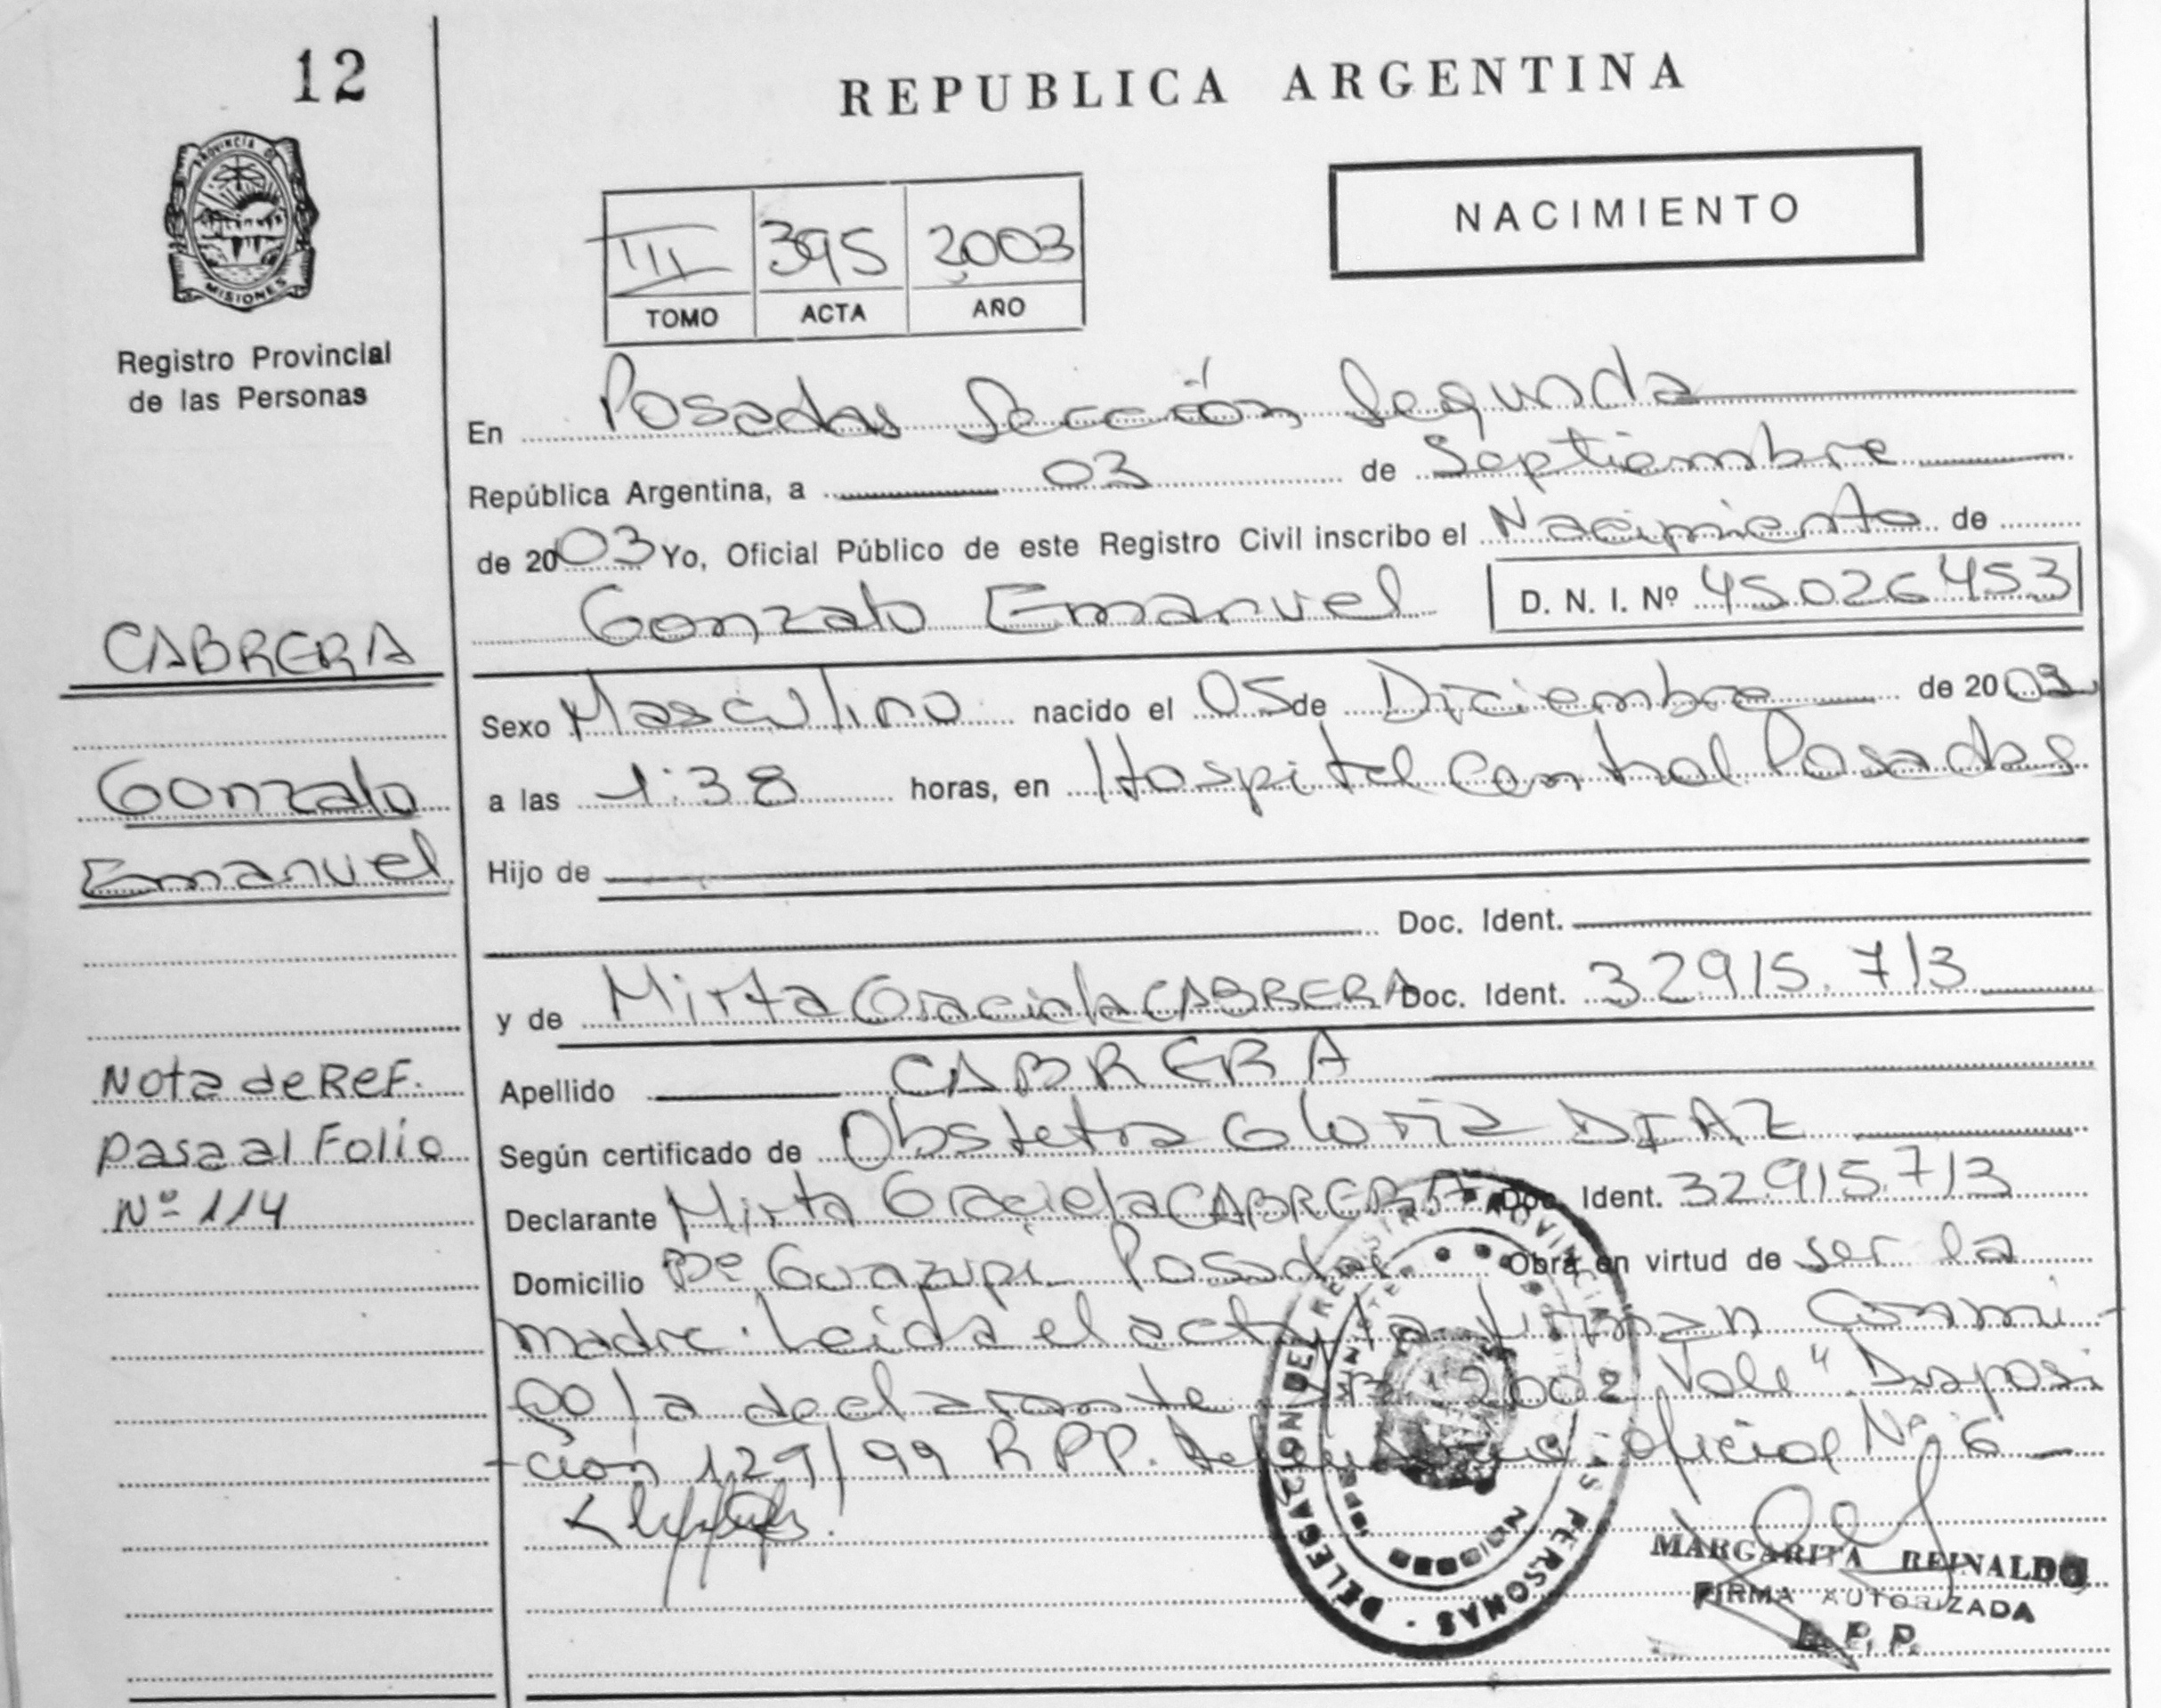 12
REPUBLICA ARGENTINA
PROVINCIA DE
MISIONES
Registro Provincial
de las Personas
NACIMIENTO
III 395 2003
TOMO ACTA AÑO
En Posadas Sección Segunda
República Argentina, a 03 de Septiembre
de 2003 Yo, Oficial Público de este Registro Civil inscribo el Nacimiento de
Gonzalo Emanuel D. N. I. Nº 45026453
CABRERA
Sexo Masculino nacido el 05 de Diciembre de 20
Gonzalo
a las 1:38 horas, en Hospital Central Posadas
Emanuel
Hijo de
Doc. Ident.
y de Mirta Graciela CABRERA Doc. Ident. 32915.713
Nota de Ref.
Apellido CABRERA
pasa al Folio
Según certificado de Obstetra Gloria DIAZ
Nº 114
Declarante Mirta Graciela CABRERA Doc. Ident. 32.915.713
Domicilio Bº Guazupi Posadas Obra en virtud de ser la
madre. Leida el acta la firman Conmi-
go la declarante 2002 Vale". Disposi
-ción 129/99 R.P.P. oficial Nº 6
DELEGACION DEL REGISTRO PROVINCIAL DE LAS PERSONAS
MARGARITA REINALDO
FIRMA AUTORIZADA
R. P. P.